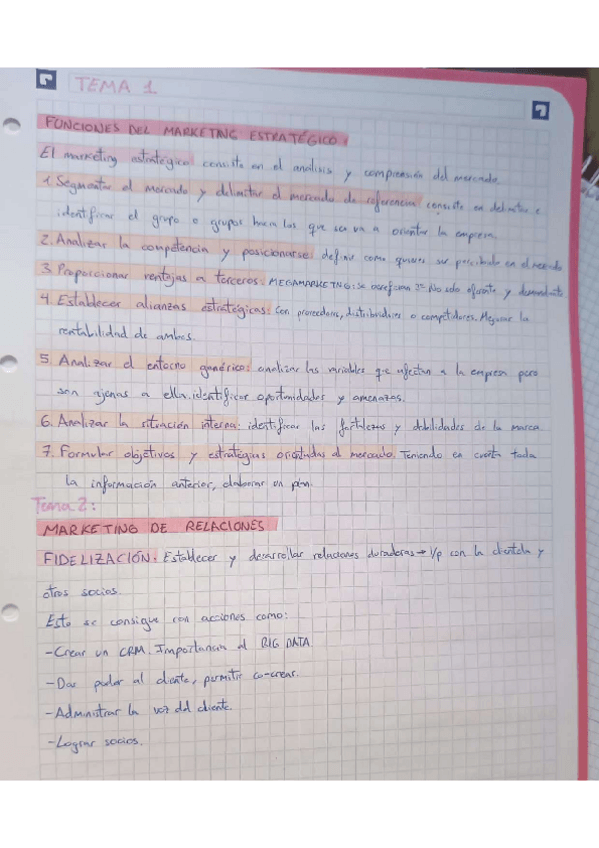 TEMA 1
FUNCIONES DEL MARKETING ESTRATÉGICO:
El marketing estratégico consiste en el análisis y comprensión del mercado.
1. Segmentar el mercado y delimitar el mercado de referencia consiste en delimitar e
identificar el grupo o grupos hacia los que se va a orientar la empresa.
2. Analizar la competencia y posicionarse: definir como quieres ser percibido en el mercado
3. Proporcionar ventajas a terceros: MEGAMARKETING: Se No solo oferente y demandante
4. Establecer alianzas estratégicas: Con proveedores, distribuidores o competidores. Mejorar la
rentabilidad de ambos.
5. Analizar el entorno genérico: analizar las variables que afectan a la empresa pero
son ajenas a ella. identificar oportunidades y amenazas.
6. Analizar la situación interna: identificar las fortalezas y debilidades de la marca
7. Formular objetivos y estrategias orientadas al mercado. Teniendo en cuenta toda
la información anterior, elaborar un plan.
Tema 2:
MARKETING DE RELACIONES
FIDELIZACIÓN: Establecer y desarrollar relaciones duraderas → l/p con la clientela y
otros socios.
Esto se consigue con acciones como:
-Crear un CRM. Importancia al BIG DATA
-Dar poder al cliente, permitir co-crear.
-Administrar la voz del cliente.
-Lograr socios.